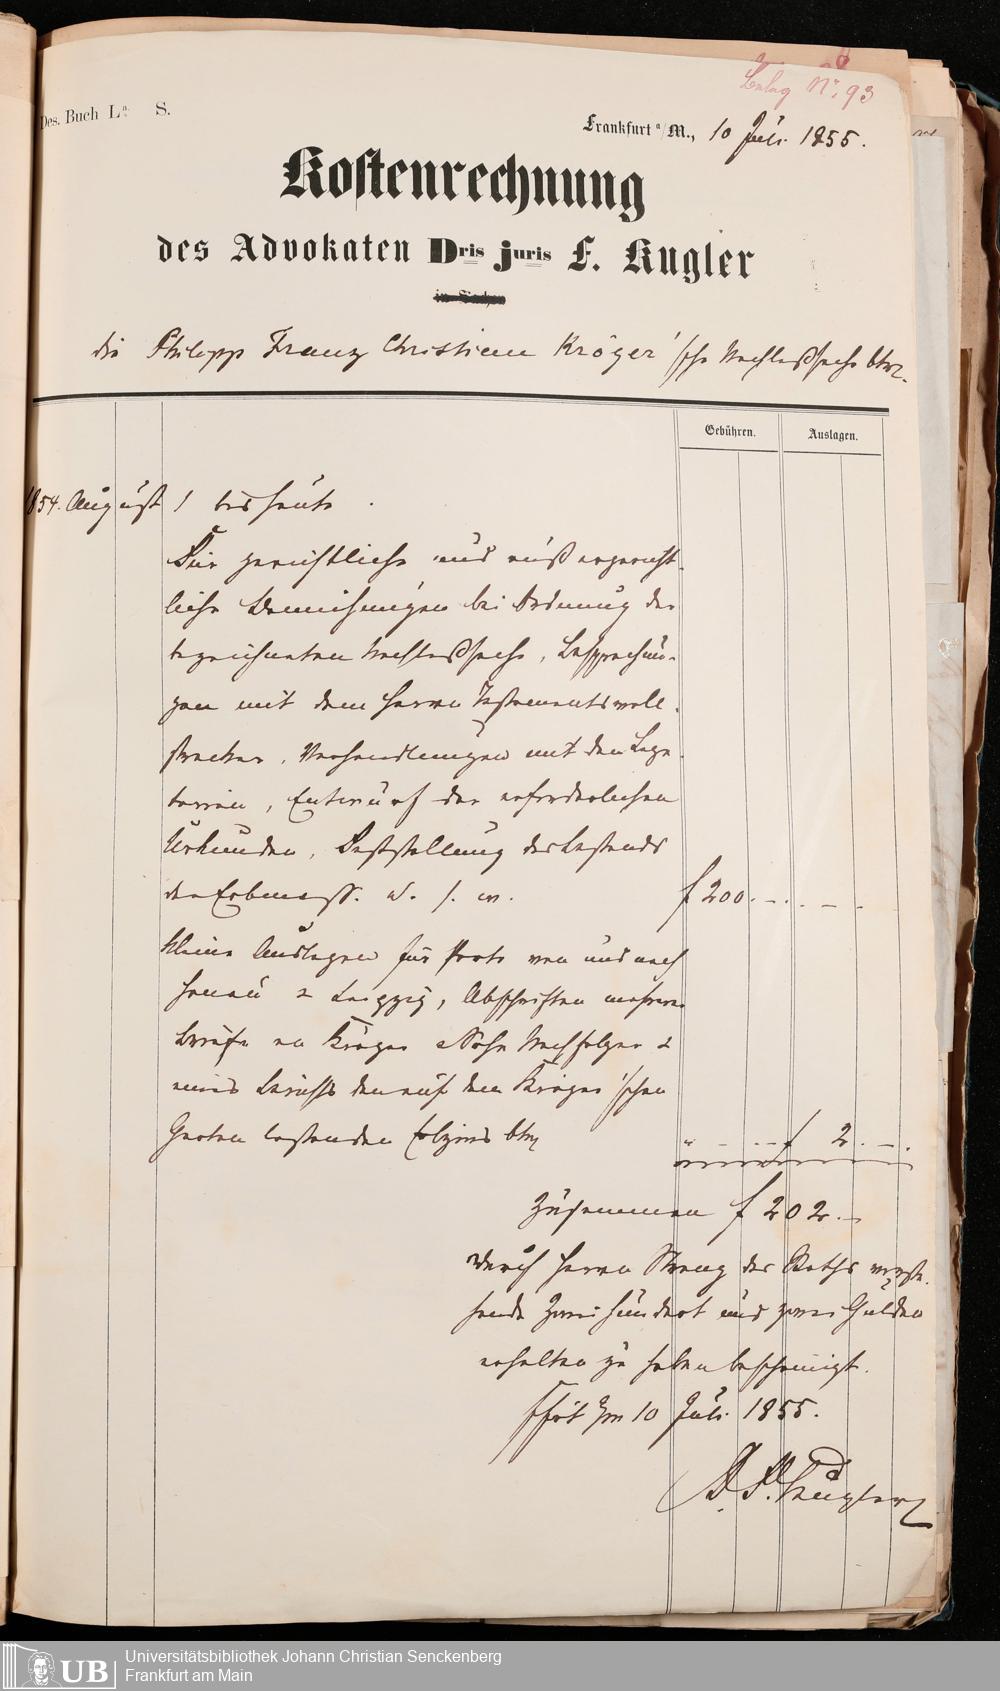 Beleg No. 93
Des. Buch La. S.
Frankfurt a/M., 10 Juli 1855.
Kostenrechnung
des Advokaten Dris juris F. Kugler
in Sachen
die Philipp Franz Christian Kröger'sche Nachlaßsache btr.
Gebühren. Auslagen.
1854. August 1 bis heute.
Für gerichtliche und außergericht-
liche Bemühungen bei Ordnung der
bezeichneten Nachlaßsache, Besprechun-
gen mit dem Herrn Testamentsvoll-
strecker, Verhandlungen mit den Lega-
tarien, Entwurf der erforderlichen
Urkunden, Feststellung des Bestands
der Erbmasse. u. s. w. f 200.--.--
Kleine Auslagen für Porto von und nach
Hanau & Leipzig, Abschriften mehrerer
Briefe an Kröger Nachfolger &
eines Berichts den auf dem Kröger'schen
Garten lastenden btr. " -- f 2.--.
Zusammen f 202.--
Durch Herrn des Raths
zweihundert und zwei Gulden
erhalten zu haben bescheinigt.
Ffurt den 10 Juli 1855.
Dr. F. Kugler
UB
Universitätsbibliothek Johann Christian Senckenberg
Frankfurt am Main